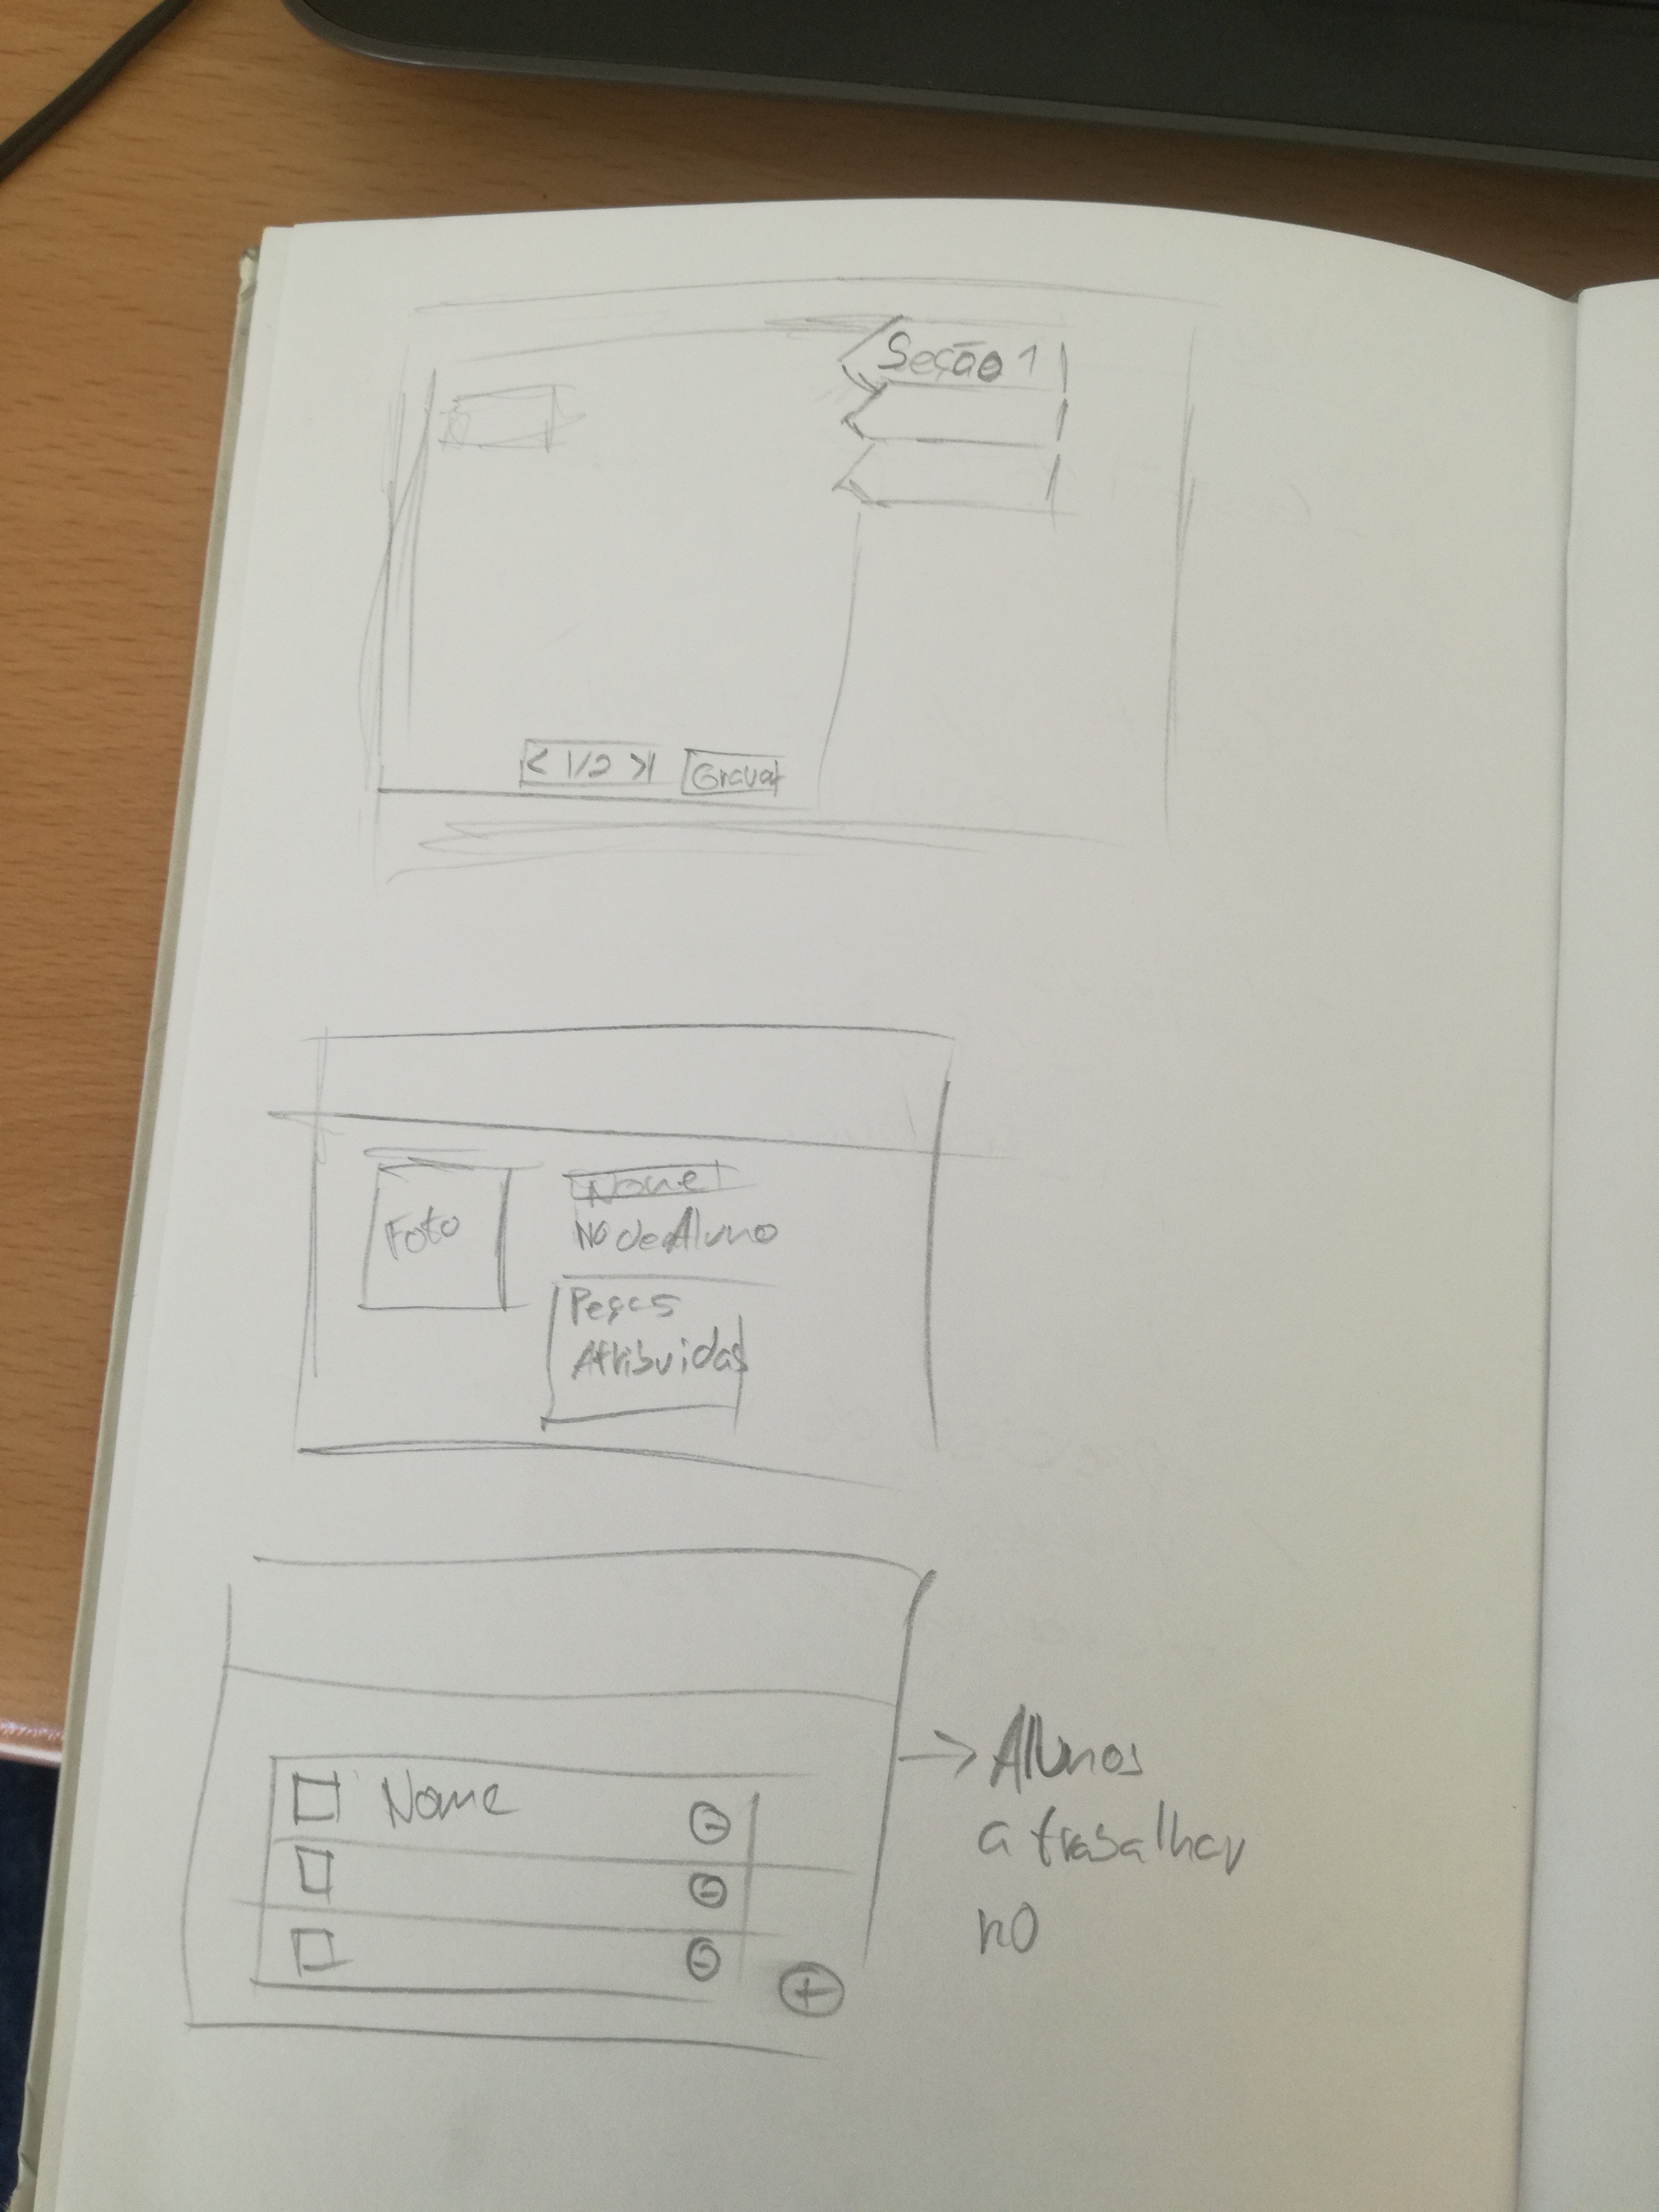 Seção 1
< 1/2 >
Gravar
Foto
Nome
Nº de Aluno
Peças
Atribuidas
Nome
-
-
-
+
→ Alunos
a trabalhar
no